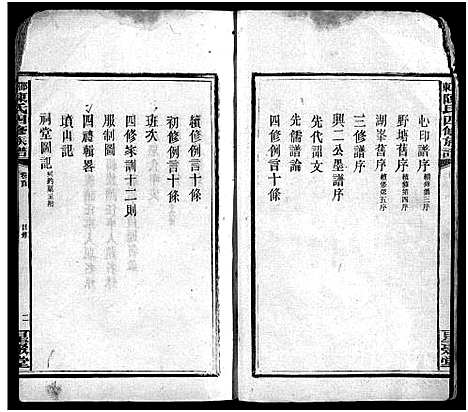 心印譜序 續修第三序
野塘舊序 續修第四序
湖峯舊序 續修第五序
三修譜序
興二公墨譜序
先代誥文
先儒譜論
四修例言十條
續修例言十條
初修例言十條
班次
四修家訓十二則
服制圖
四禮輯畧
墳山記
祠堂圖記
氏四修族譜
卷首
目錄
二